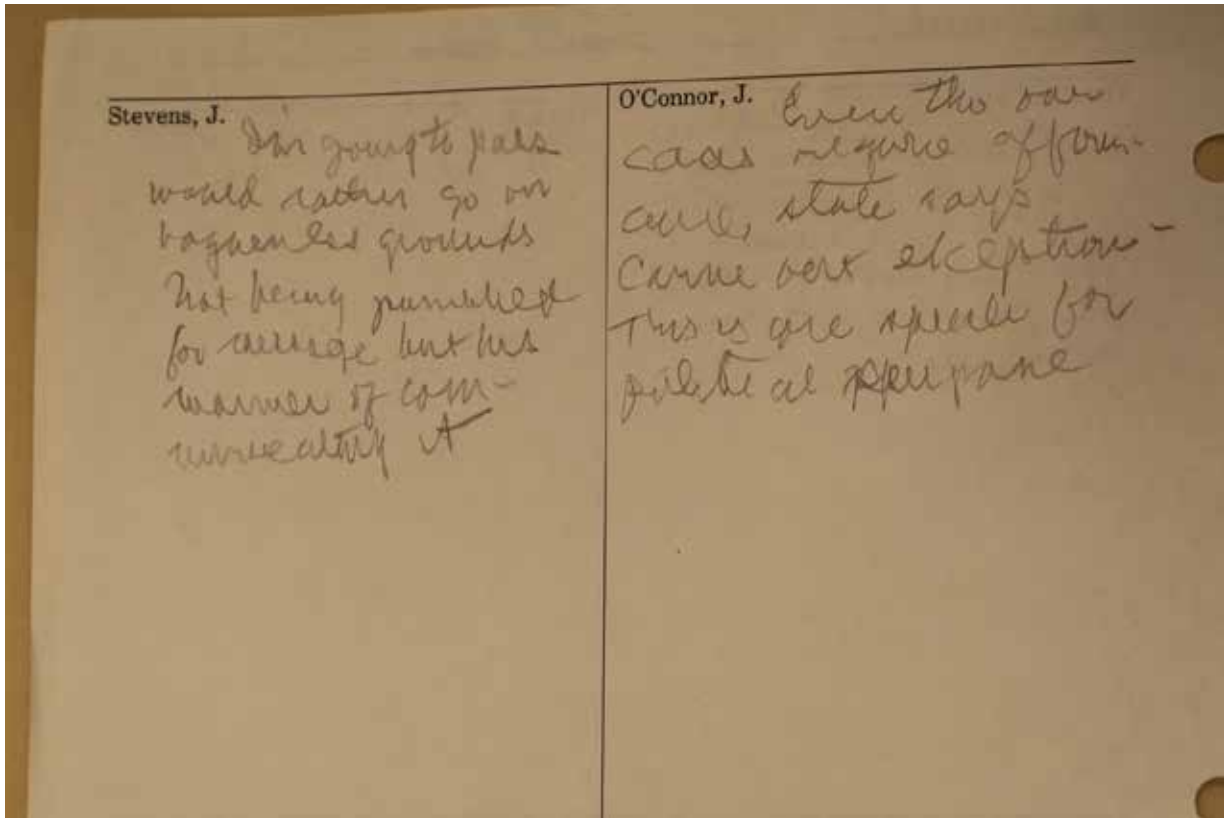 Stevens, J.
I'm going to pass
would rather go on
vagueness grounds
Not being punished
for message but his
manner of com-
municating it
O'Connor, J.
Even tho our
cases require affirm-
ance, state says
Carve out exception -
This is one special for
political purpose